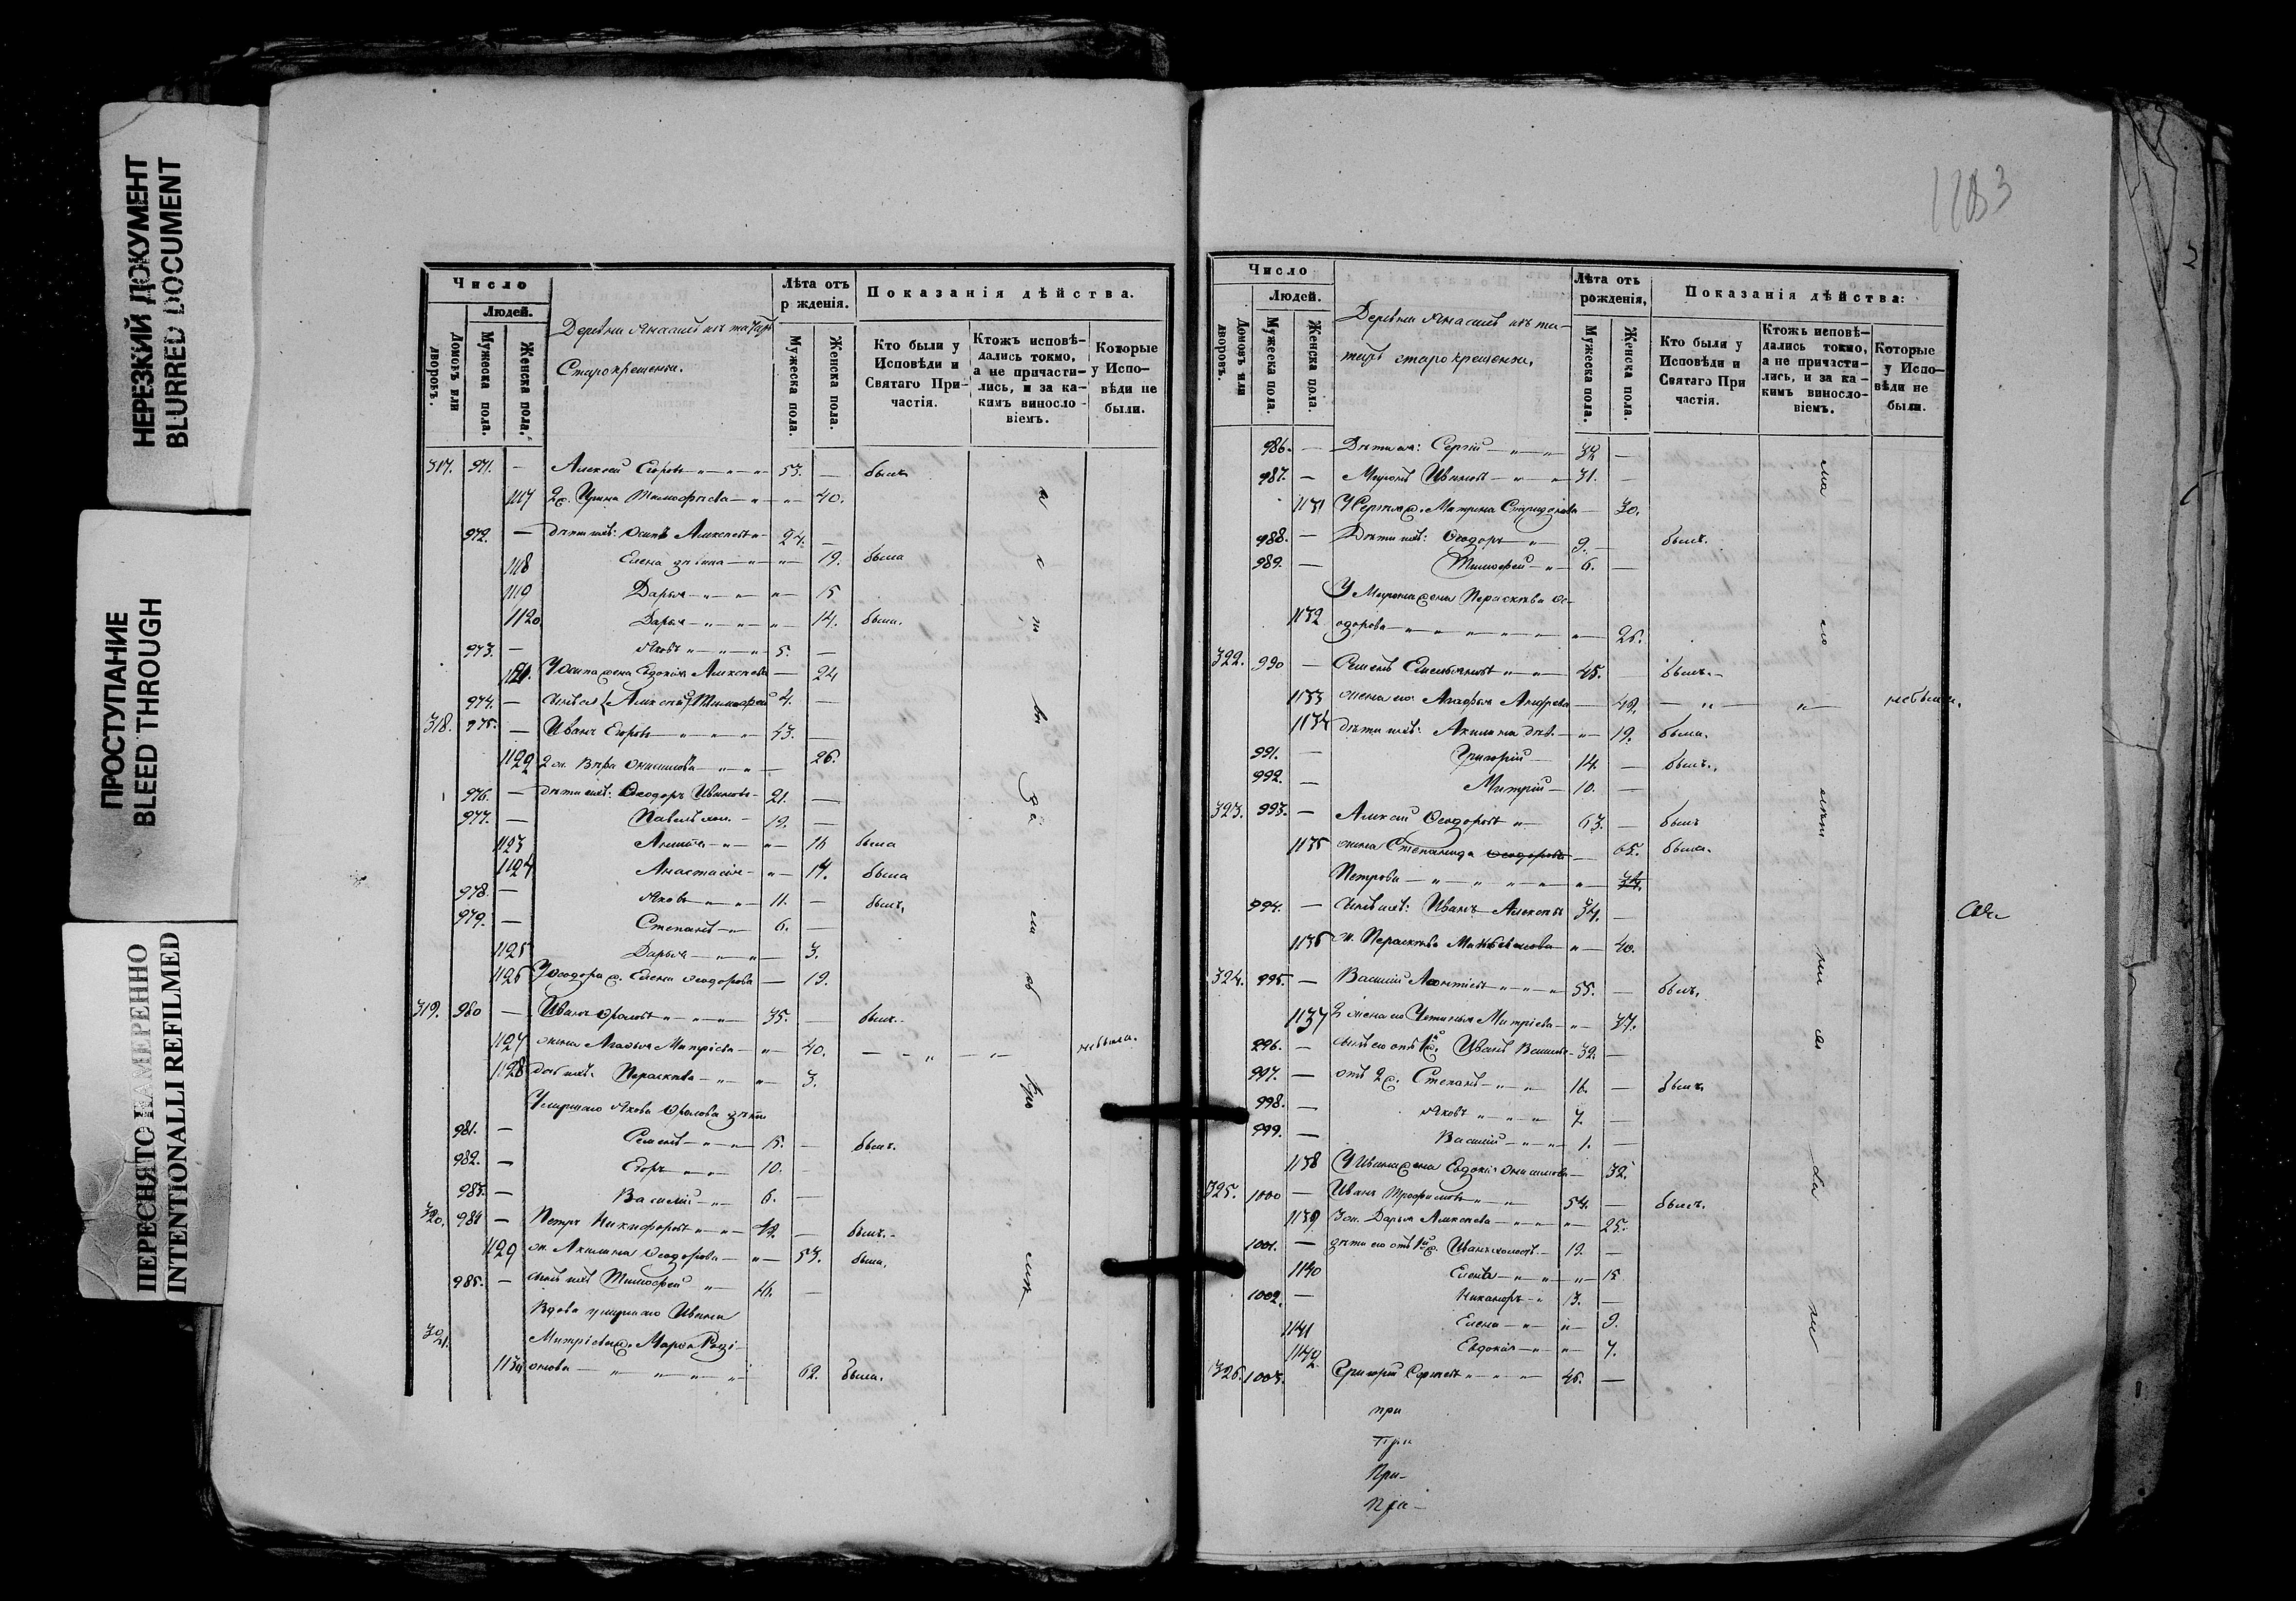 НЕРЕЗКИЙ ДОКУМЕНТ
BLURRED DOCUMENT
ПРОСТУПАНИЕ
BLEED THROUGH
ПЕРЕСНЯТО НАМЕРЕННО
INTENTIONALLI REFILMED
Число
Людей.
Домовъ или дворовъ.
Мужеска пола.
Женска пола.
Деревни Янасалъ изъ татаръ
Старокрещенки.
Лѣта отъ рожденія.
Мужеска пола.
Женска пола.
Показанія дѣйства.
Кто были у Исповѣди и Святаго Причастія.
Ктожъ исповѣдались токмо, а не причастились, и за какимъ винословіемъ.
Которые у Исповѣди не были.
317. 971. — Алексѣй Егоровъ 53. — былъ
1117 2ж. Ирина Тимофѣева — 40.
972. — дѣти ихъ: Осипъ Алексѣевъ 24. —
1118 Елена дѣвица — 19. была
1119 Дарья — 15
1120 Дарья — 14. была.
973. — Яковъ 5. —
1121. У Осипа жена Евдокія Алексѣева — 24
974. — Алексѣй Тимофей 4. —
318. 975. — Иванъ Егоровъ 43. —
1122 2 ж. Вѣра Онисимова — 26.
976. — дѣти ихъ: Ѳеодоръ Ивановъ 21. —
977. — Павелъ хол. 19. —
1123 — 16 была
1124 Анастасія — 14. была
978. — Яковъ 11. — былъ,
979. — Степанъ 6. —
1125 Дарья — 3.
1126 У Ѳеодора ж. Елена Ѳеодорова — 19.
319. 980 — Иванъ Фроловъ 35. — былъ.
1127 жена Агафья Митріева — 40. небыла.
1128 Параскева — 3.
Умершаго Якова Фролова дѣти
981. — Семенъ 15. — былъ.
982. — Егоръ 10. —
983. — Василій 6. —
320. 984 — Петръ Никифоровъ — былъ.
1129 ж. Акилина Ѳеодорова — 53. была.
985. — сынъ ихъ Тимофей 16. —
Вдова умершаго Ивана
321. Митріева ж. Марѳа Роді-
1130 онова 62. была.
Число
Людей.
Домовъ или дворовъ.
Мужеска пола.
Женска пола.
Деревни Янасалъ изъ та-
таръ старокрещенки,
Лѣта отъ рожденія,
Мужеска пола.
Женска пола.
Показанія дѣйства:
Кто были у Исповѣди и Святаго При частія.
Ктожъ исповѣдались токмо, а не причастились, и за какимъ винословіемъ.
Которые у Исповѣди не были.
986. — Дѣти ея: Сергій 32 —
987. — Миронъ Ивановъ 31. —
1131 У Сергія ж. Матрена Спиридонова — 30.
988. — Дѣти ихъ: Ѳеодоръ 9. — былъ.
989. — Тимофей 6. —
У Мирона жена Параскева Ѳе-
1132 одорова 26.
322. 990 — Семенъ Емельяновъ 45. — былъ.
1133 жена его Агафья Андреева — 42. небыла.
1134 дѣти ихъ: Акилина дѣв. — 19. была.
991. — Григорій 14. — былъ.
992. — Митрій 10. —
323. 993. — Алексѣй Ѳеодоровъ 63. — былъ
1135 жена Степанида Ѳеодорова — 65. была.
Петрова
994. — сынъ ихъ: Иванъ Алексѣевъ 34. —
1136 ж. Параскева — 40.
324. 995. — Василій Леонтіевъ 55. — былъ,
1137 2 жена его Устинья Митріева — 37.
996. — сынъ его отъ 1й ж. Иванъ Васильевъ 32. —
997. — отъ 2 ж. Степанъ 16. — былъ.
998. — Яковъ 7. —
999. — Василій 1. —
1138 У Ивана жена Евдокія Онисимова — 32.
325. 1000 — Иванъ Трофимовъ 54. — былъ.
1139. 3 ж. Дарья Алексѣева — 25.
1001. — дѣти его отъ 1й ж. Иванъ холостъ 19. —
1140 Елена — 15
1002. — Никаноръ 13. —
1141 Елена — 9.
1142 Евдокія — 7.
326. 1003. Григорій Сергѣевъ 46. —
при
При
При-
При-